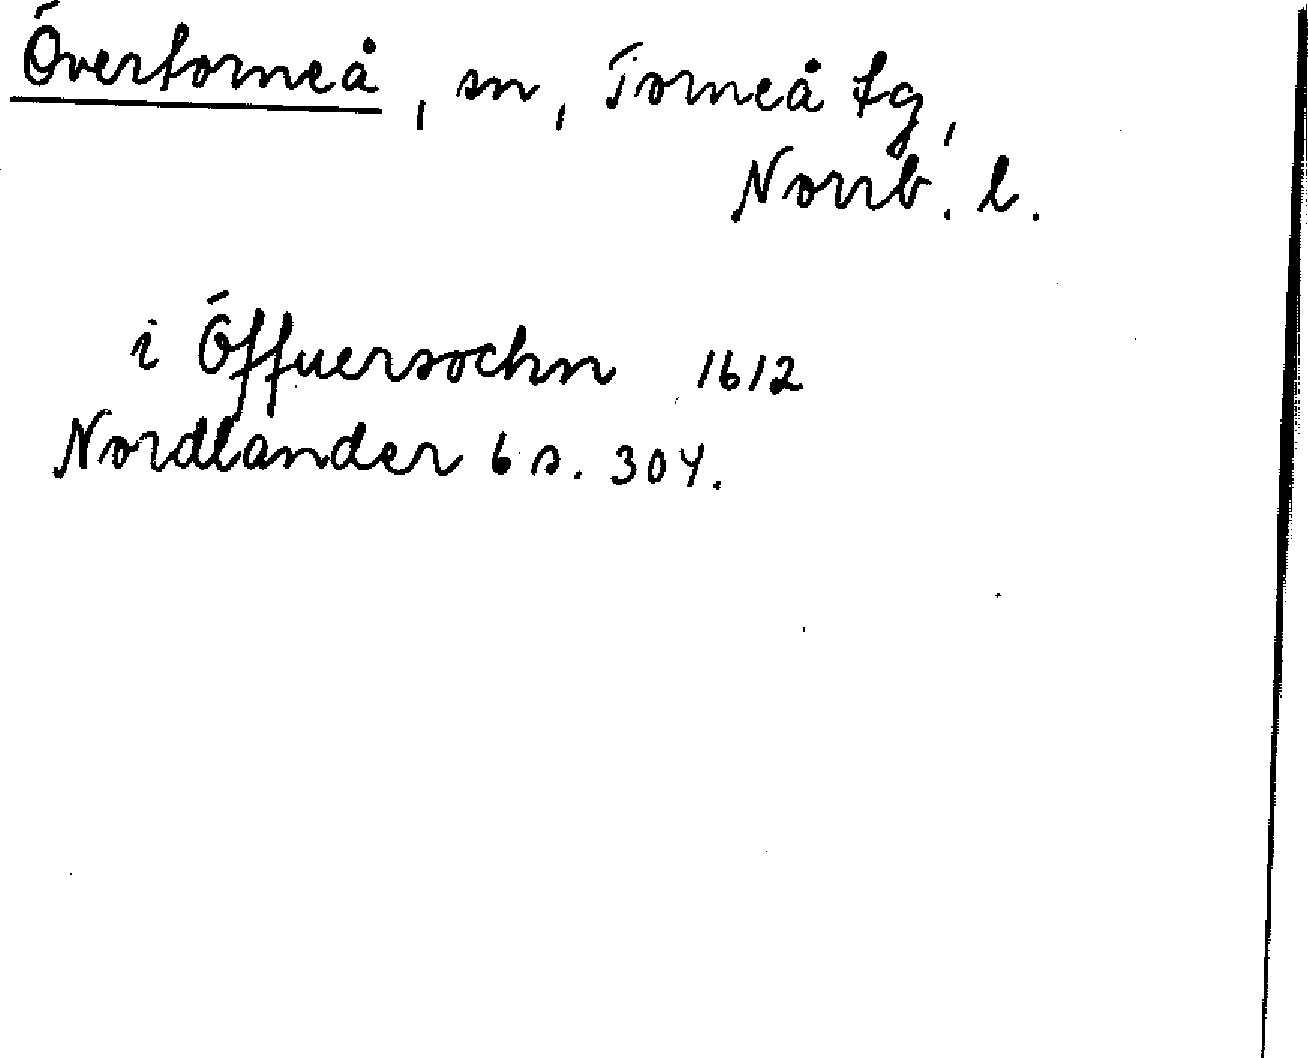 Övertorneå, sn, Torneå tg,
Norrb. l.
i Öffuersochn 1612
Nordlander 6 s. 304.